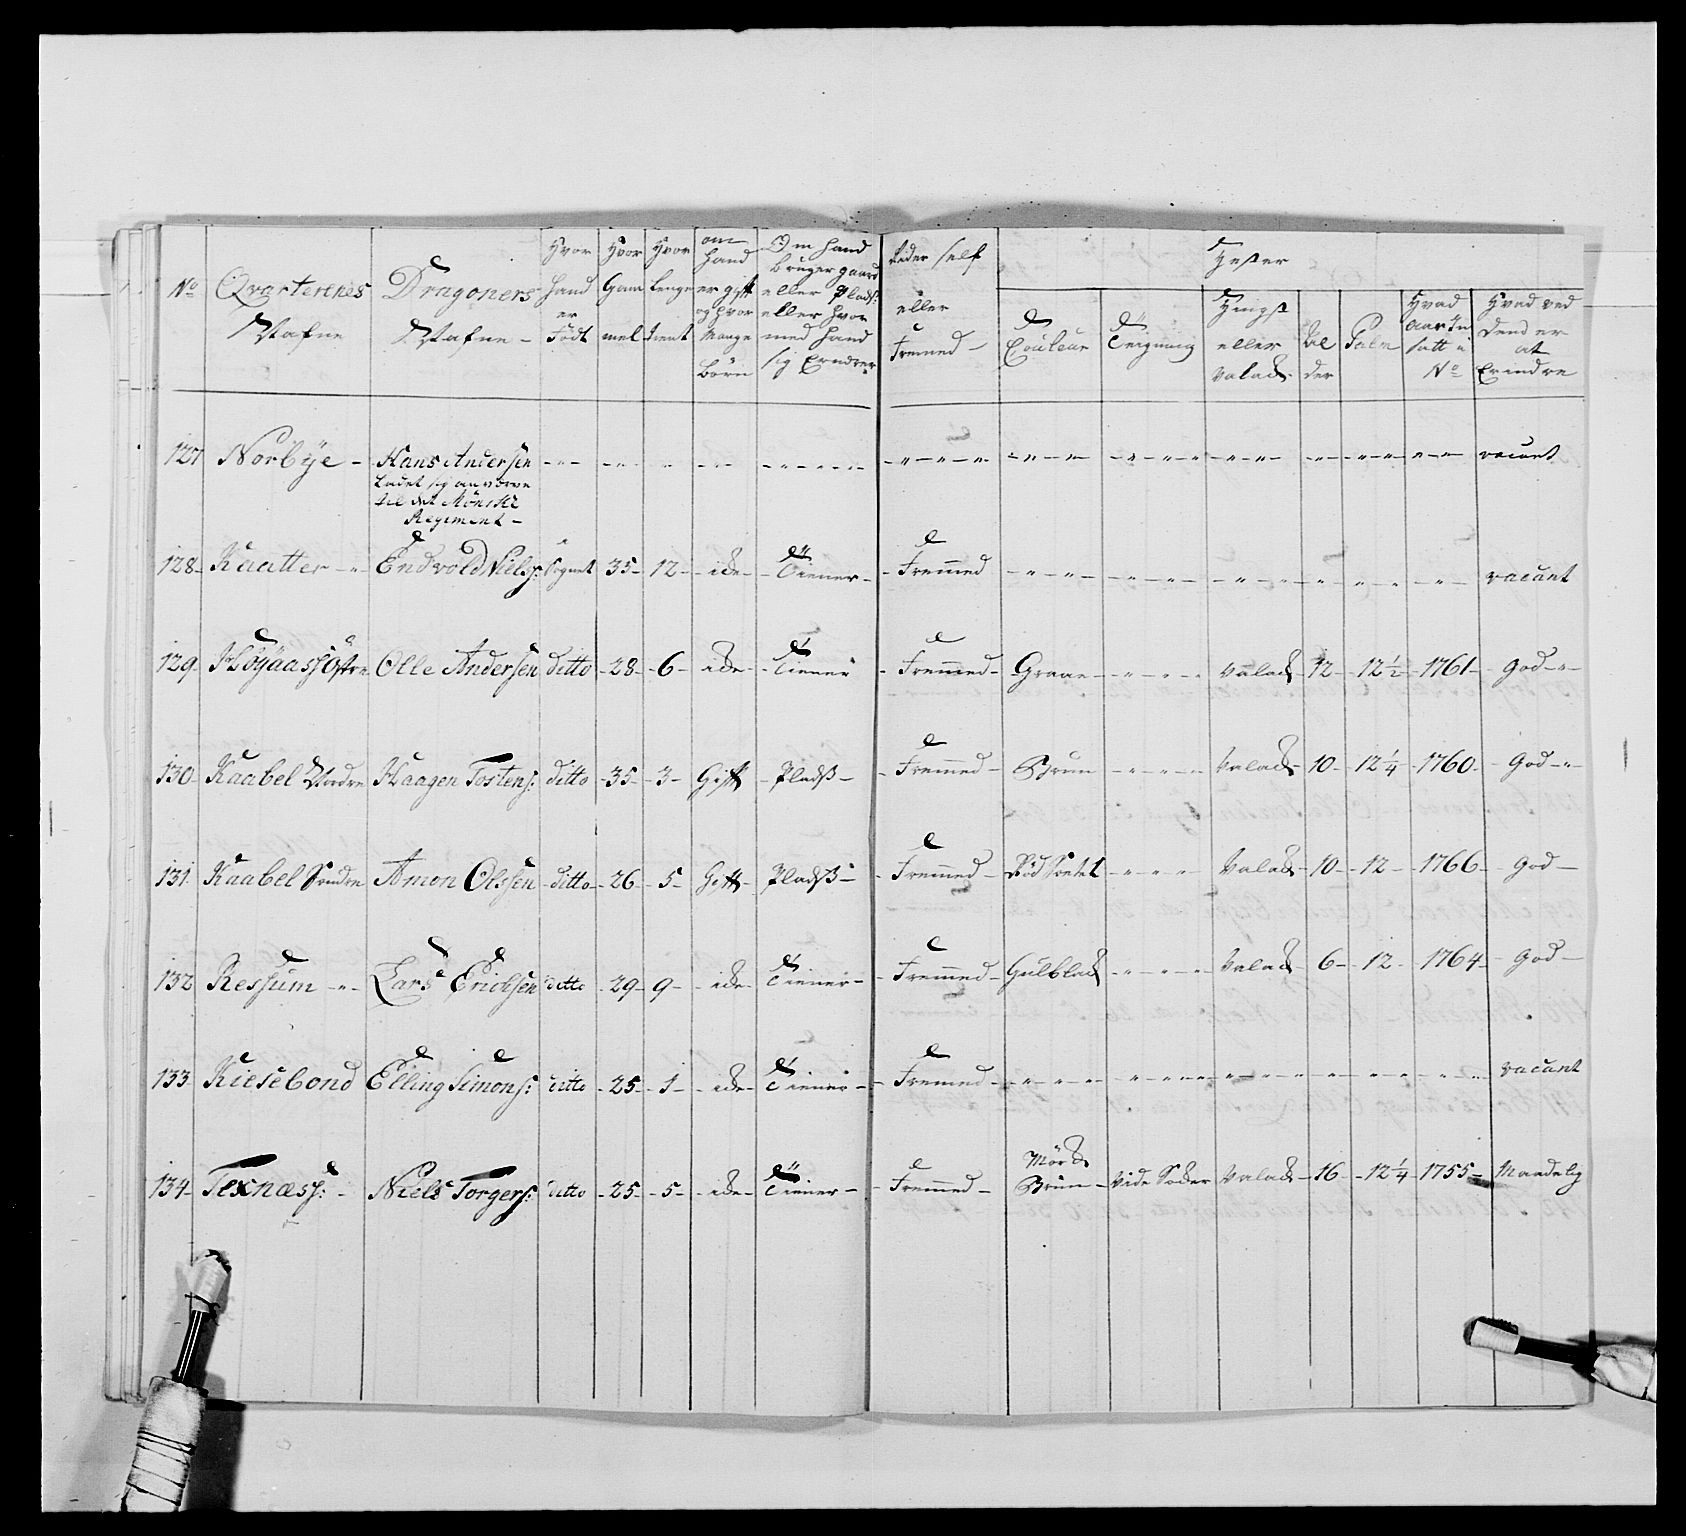 No Qvarterenes Nafne Dragoners Nafne - Hvor Hand er Födt Hvor Gam mel Hvor lenge tient om Hand er gift og hvor mange Börn Om Hand bruger gaard eller Plads: eller hvor med Hand sig Erndrer Rider self eller Fremmed - Hester
Couleur Teigning Hingst eller Valack Al der Palm Hvad aar In satt i No Hvad ved dend er at Erindre
127 Norbÿe - Hans Andersen vacant
Ladet sig anverve
til det Mönske
Regiment -
128 - Kaatter Endvold Niels: Sognet - 35 - 12 - ide - Tiener - Fremmed vacant
129 Högaass Östre Olle Andersen ditto - 28 - 6 - ide - Tiener - Fremmed - Graae Valack 12 - 12 1/2 - 1761 - god
130 Kaabel Nordre Haagen Tostens: ditto - 35 - 3 - Gift - Pladß - Fremmed - Brun Valack - 10 - 12 1/4 - 1760 - god
131 Kaabel Söndre Amon Olssen ditto - 26 - 5 - Gift - Pladß - Fremmed - Röd Valack - 10 - 12 - 1766 - god -
132 Ressum Lars Erichsen ditto - 29 - 9 - ide - Tiener - Fremmed - Gulblack Valack - 6 - 12 - 1764 - god -
133 Kiesebond Elling Simons: ditto - 25 - 1 - ide - Tiener - Fremed vacant
134 Texnæss: - Niels Torgers: ditto - 25 - 5 - ide - Tiener - Fremmed - Mörck Brun - Vide Valack - 16 - 12 1/4 - 1755 - Maadelig